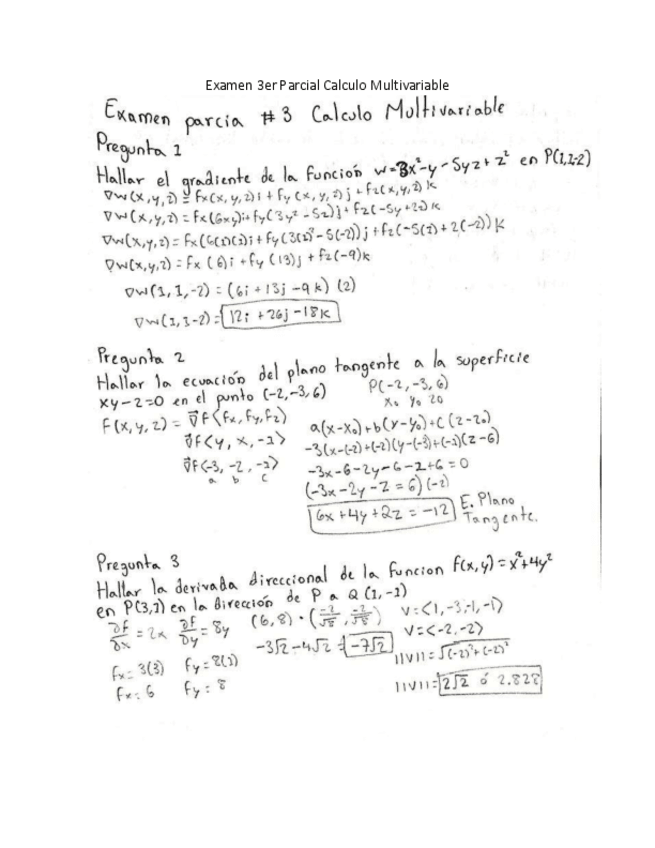 Examen 3er Parcial Calculo Multivariable
Examen parcia #3 Calculo Multivariable
Pregunta 1
Hallar el gradiente de la función w=3x²-y-5yz+z² en P(1,1,-2)
∇w(x,y,z)=fx(x,y,z)i+fy(x,y,z)j+fz(x,y,z)k
∇w(x,y,z)=fx(6xy)i+fy(3y²-5z)j+fz(-5y+2z)k
∇w(x,y,z)=fx(6(1)(1)i+fy(3(1)²-5(-2))j+fz(-5(1)+2(-2))k
∇w(x,y,z)=fx(6)i+fy(13)j+fz(-9)k
∇w(1,1,-2)=(6i+13j-9k)(2)
∇w(1,1-2)=12i+26j-18k
Pregunta 2
Hallar la ecuación del plano tangente a la superficie
xy-z=0 en el punto (-2,-3,6)
P(-2,-3,6)
x₀ y₀ z₀
F(x,y,z)=∇f<fx,fy,fz>
∇f<y,x,-1>
∇f<-3,-2,-1>
a b c
a(x-x₀)+b(y-y₀)+c(z-z₀)
-3(x-(-2)+(-2)(y-(-3)+(-1)(z-6)
-3x-6-2y-6-z+6=0
(-3x-2y-z=6)(-2)
6x+4y+2z=-12
E. Plano
Tangente.
Pregunta 3
Hallar la derivada direccional de la funcion f(x,y)=x²+4y²
en P(3,1) en la dirección de P a Q(1,-1)
∂f/∂x=2x ∂f/∂y=8y
fx=3(3) fy=8(1)
fx=6 fy=8
(6,8)·(-2/√8,-2/√8)
-3√2-4√2=-7√2
V=<1,-3,-1,-1>
V=<-2,-2>
||V||=√(-2)²+(-2)²
||V||=2√2 ó 2.828